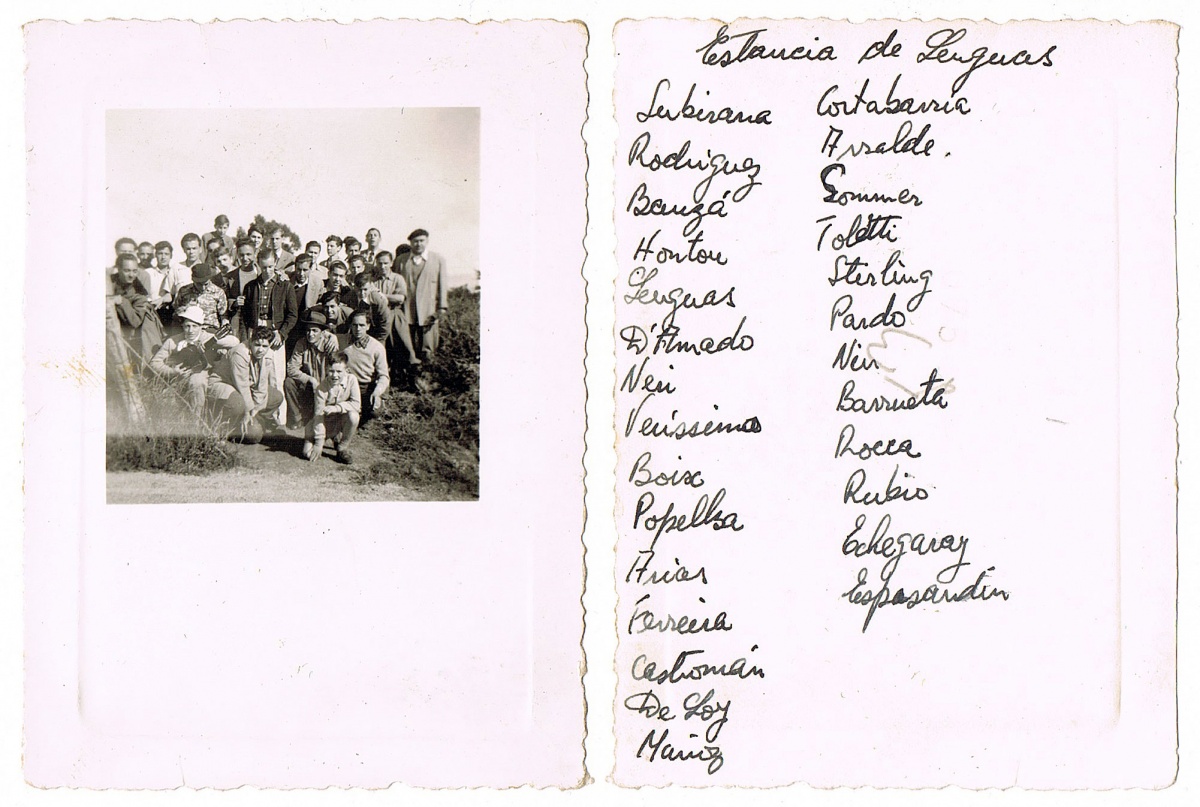 Estancia de Lenguas
Subirana
Rodriguez
Bauzá
Hontou
Lenguas
D'Amado
Neri
Veríssimo
Boix
Popelka
Arias
Ferreira
Castromán
De Loy
Cortabarría
Arralde.
Sommer
Toletti
Sterling
Pardo
Nin
Barrueta
Rocca
Rubio
Echegaray
Espasandín